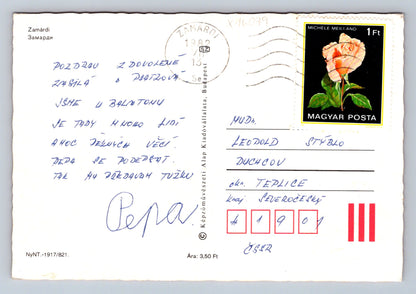 Zamárdi
Замарди
ZAMÁRDI
MICHÈLE MEILLAND
1 Ft
MAGYAR POSTA
POZDRAV Z DOVOLENÉ
ZASÍLÁ
JSME U BALATONU
JE TADY MNOHO LIDÍ
A MOC PĚKNÝCH VĚCÍ.
PEPA SE PODEPSAL
TAK MU PŘEDÁVÁM TUŽKU
Pepa
© Képzőművészeti Alap Kiadóvállalata, Budapest
MUDr.
LEOPOLD STÝBLO
DUCHCOV
okr. TEPLICE
kraj SEVEROČESKÝ
4 1 9 0 1
ČSSR
NyNT.-1917/821.
Ára: 3,50 Ft